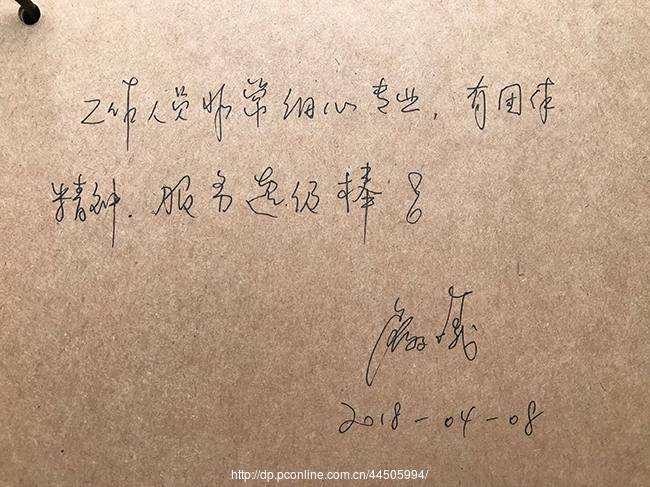 工作人员非常细心专业，有团体
精神．服务超级棒！
2018-04-08
http://dp.pconline.com.cn/44505994/